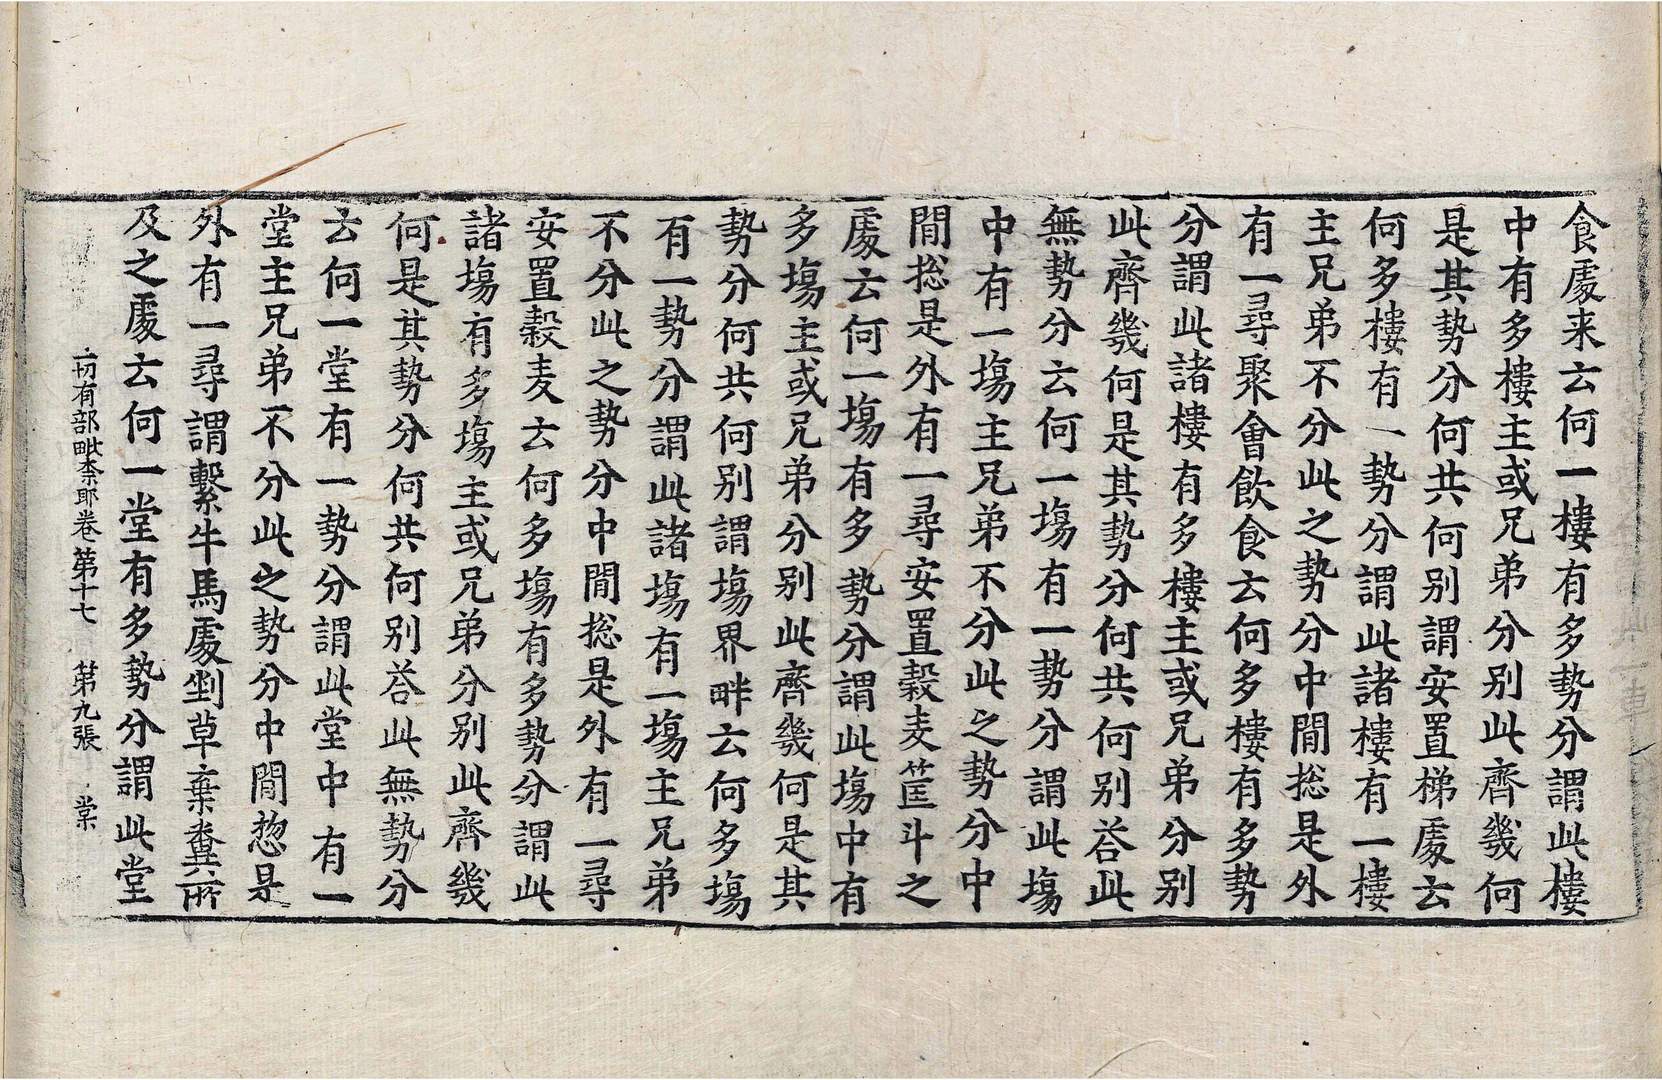 食處来云何一樓有多勢分謂此樓
中有多樓主或兄弟分别此齊幾何
是其勢分何共何别謂安置梯處云
何多樓有一勢分謂此諸樓有一樓
主兄弟不分此之勢分中間捴是外
有一尋聚會飲食云何多樓有多勢
分謂此諸樓有多樓主或兄弟分别
此齊幾何是其勢分何共何别荅此
無勢分云何一塲有一勢分謂此塲
中有一塲主兄弟不分此之勢分中
間捴是外有一尋安置穀麦筐斗之
處云何一塲有多勢分謂此塲中有
多塲主或兄弟分别此齊幾何是其
勢分何共何别謂塲界畔云何多塲
有一勢分謂此諸塲有一塲主兄弟
不分此之勢分中間捴是外有一尋
安置穀麦云何多塲有多勢分謂此
諸塲有多塲主或兄弟分别此齊幾
何是其勢分何共何别荅此無勢分
云何一堂有一勢分謂此堂中有一
堂主兄弟不分此之勢分中間惣是
外有一尋謂繫牛馬處剉草棄糞所
及之處云何一堂有多勢分謂此堂
一切有部毗柰耶卷第十七 第九張 棠